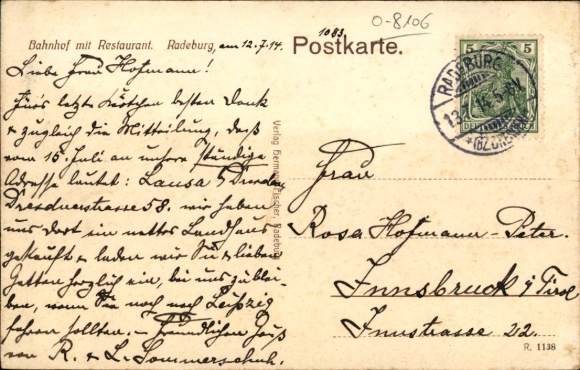 O-8106
1083
Bahnhof mit Restaurant. Radeburg, am 12.7.14.
Postkarte.
Liebe Frau Hofmann!
Fürs letzte Kärtchen besten Dank
& zugleich die Mitteilung, daß
vom 15. Juli an unsere ständige
Adresse lautet: Lausa b/Dresden
Dresdnerstrasse 58. Wir haben
uns dort ein nettes Landhaus
gekauft & laden wir Sie & lieben
Gatten herzlich ein, bei uns zu blei-
ben, wenn Sie noch nach Leipzig
fahren sollten. – Freundlichen Gruß
von R. & L. Sommerschuh.
Verlag Hermann Fischer, Radeburg
5 5
RADEBURG
DEUTSCHES
*(BZ. DRESDEN)
Frau
Rosa Hofmann-Peter.
Innsbruck i/Tirol
Innstrasse 22.
R. 1138